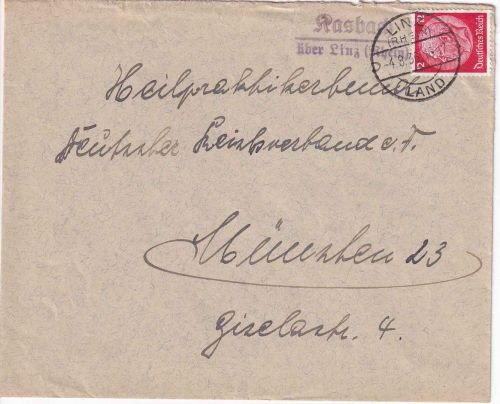 Kasbach
über Linz (Rhein)
LINZ
(RHEIN)
LAND
12
12
Deutsches Reich
Heilpraktikerbund
Deutscher Reichsverband e.V.
München 23
Giselastr. 4.